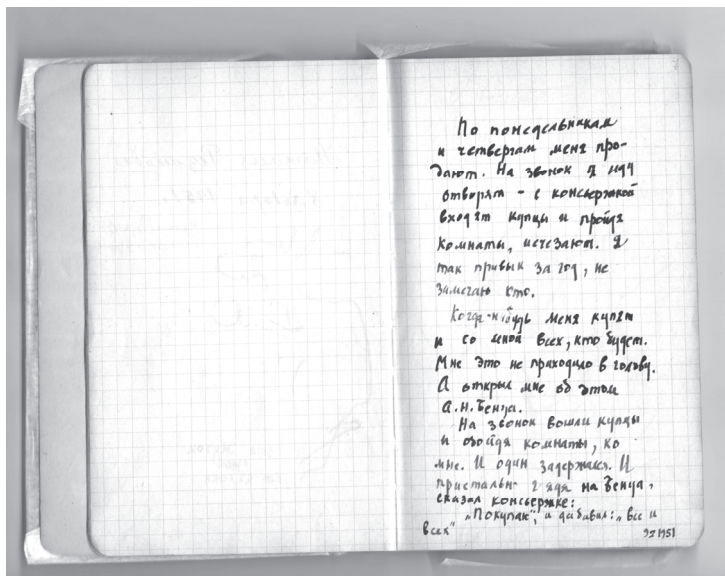 По понедельникам
и четвергам меня про-
дают. На звонок я иду
отворят - с консьержкой
входят купцы и пройдя
комнаты, исчезают. Я
так привык за год, не
замечаю кто.
Когда-нибудь меня купят
и со мной всех, кто будет.
Мне это не приходило в голову.
А открыл мне об этом
А.Н. Бенуа.
На звонок вошли купцы
и обойдя комнаты, ко
мне. И один задержался. И
пристально глядя на Бенуа,
сказал консьержке:
„Покупаю", и добавил: „все и
всех"